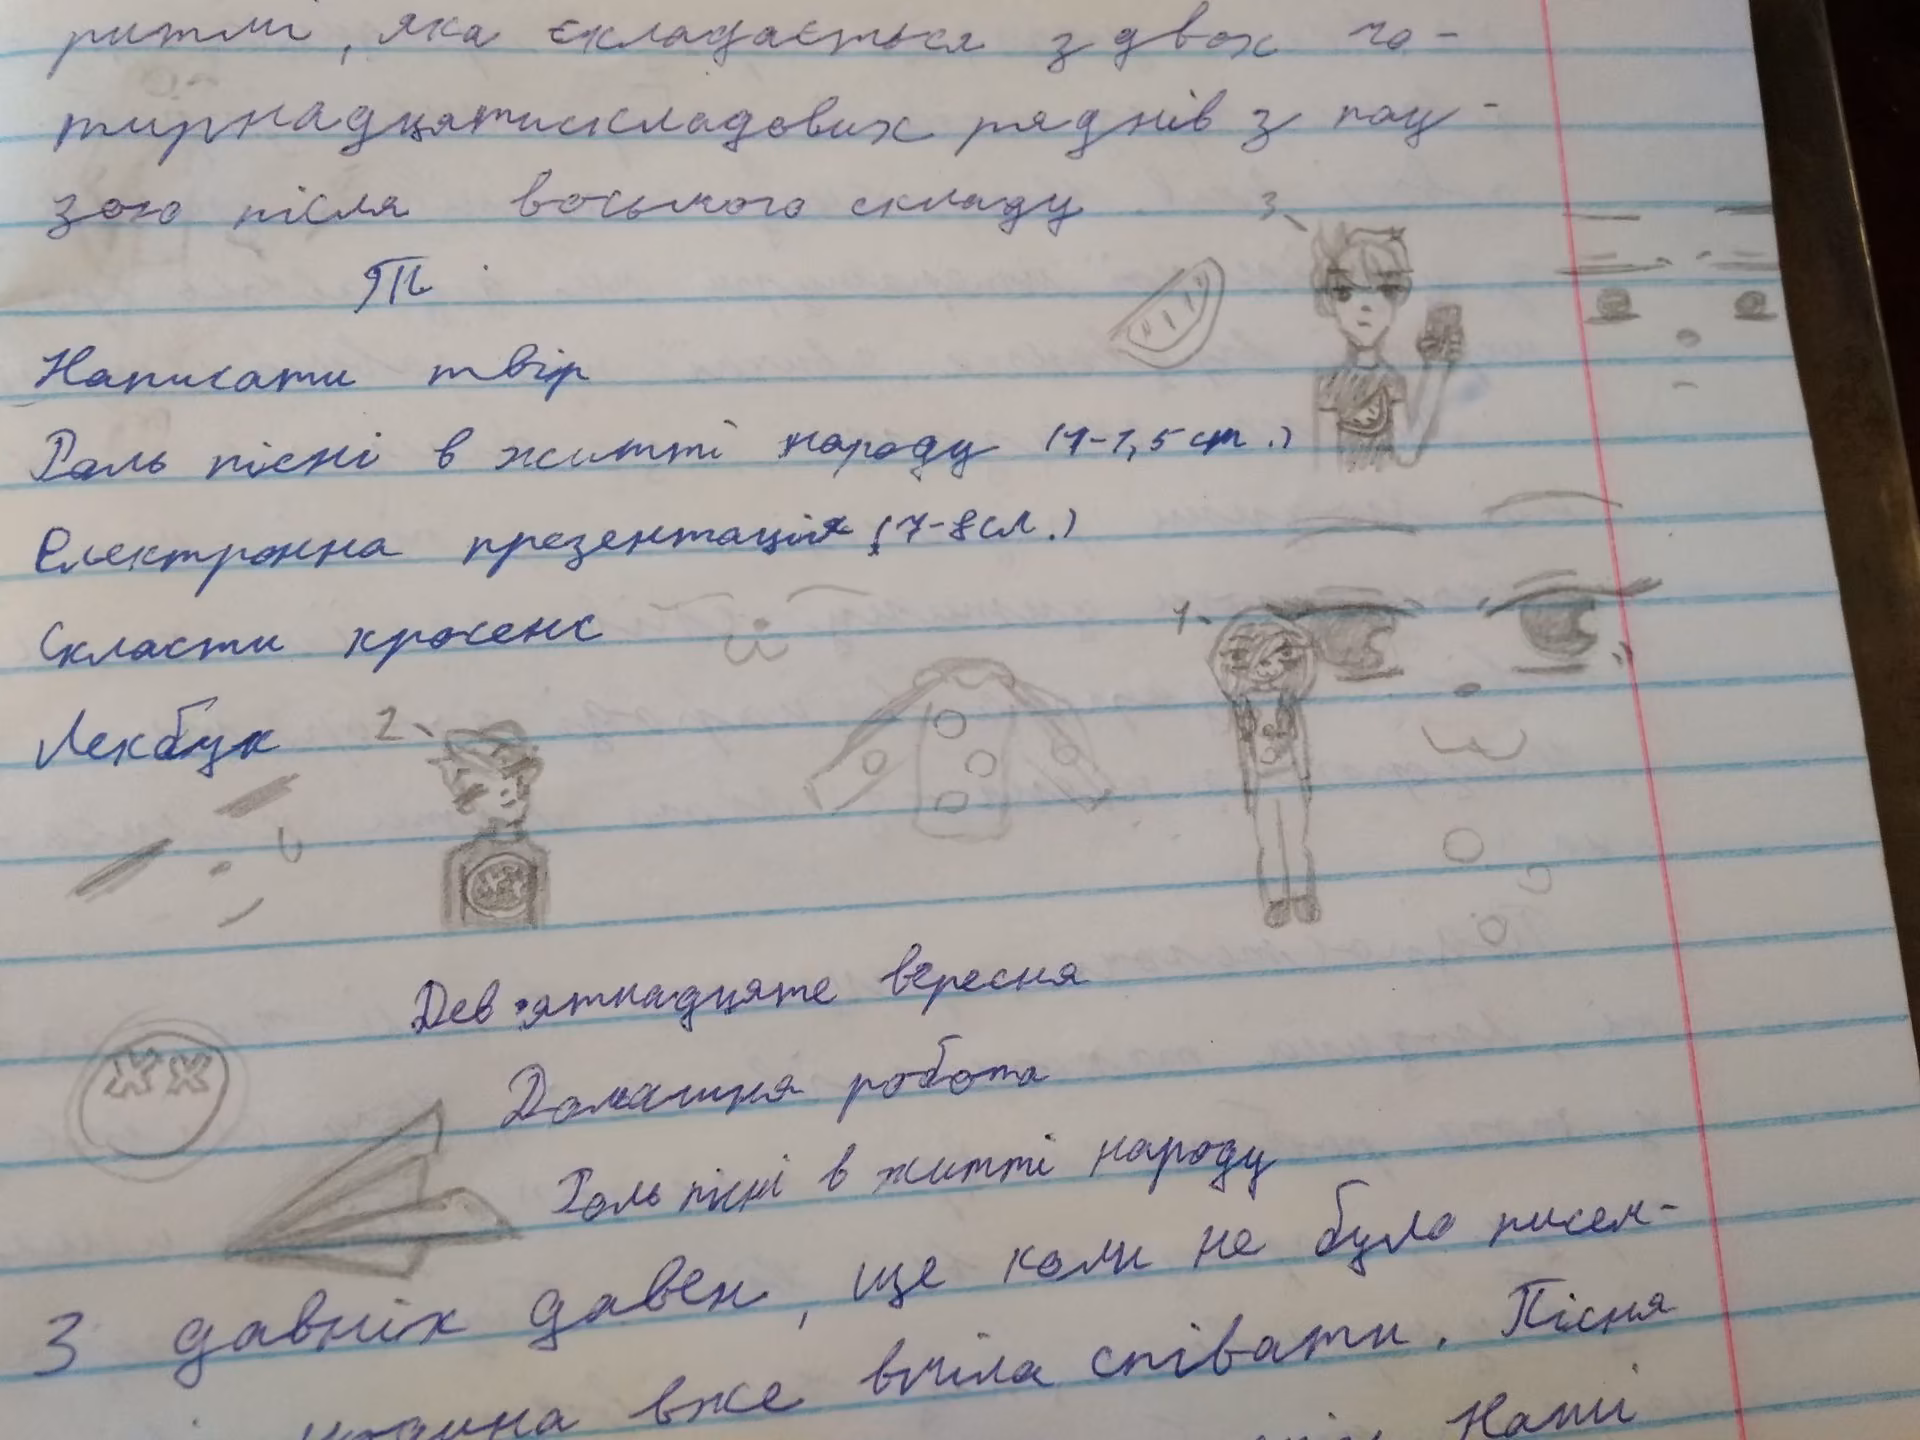 ритмі, яка складається з двох чо-
тирнадцятискладових рядків з пау-
зою після восьмого складу
3
Написати твір
Роль пісні в житті народу (1-1,5 ст.)
Електронна презентація (7-8 сл.)
1
Скласти кросенс
Лекбук
2
Дев'ятнадцяте вересня
Домашня робота
Роль пісні в житті народу
З давніх давен, ще коли не було писем-
вже вміла співати. Пісня